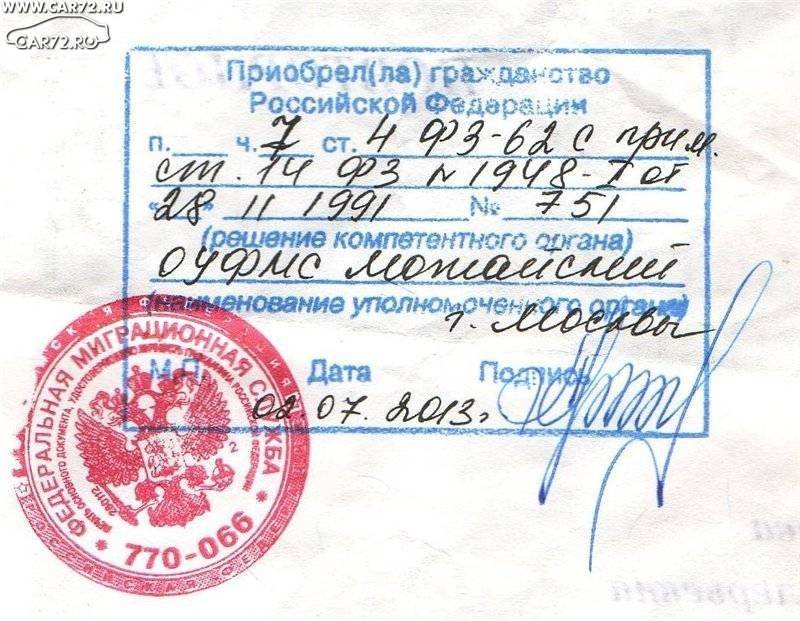 WWW.CAR72.RU
CAR72.RU
Приобрел(ла) гражданство
Российской Федерации
п. ___ ч. 7 ст. 4 ФЗ-62 с прим.
ст. 14 ФЗ N 1948-I от
"28" 11 1991 № 751
(решение компетентного органа)
ОУФМС можайский
(наименование уполномоченного органа)
г. Москвы
М.П. Дата Подпись
02.07.2013г
ФЕДЕРАЛЬНАЯ МИГРАЦИОННАЯ СЛУЖБА
* 770-066 *
2